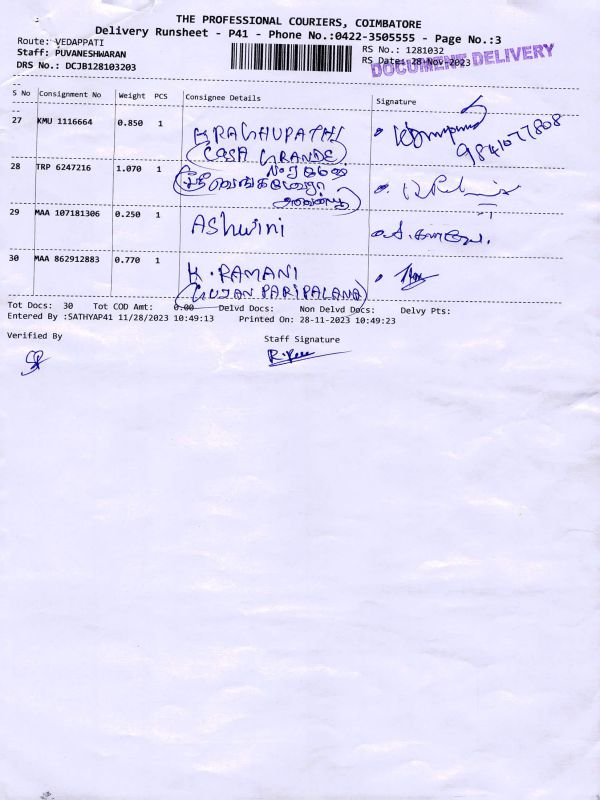 THE PROFESSIONAL COURIERS, COIMBATORE
Delivery Runsheet - P41 - Phone No.:0422-3505555 - Page No.:3
Route: VEDAPPATI
Staff: PUVANESHWARAN
DRS No.: DCJB128103203
RS No.: 1281032
RS Date: 28-Nov-2023
DOCUMENT DELIVERY
S No Consignment No Weight PCS Consignee Details Signature
27 KMU 1116664 0.850 1 K RAGHUPATHI
(CASA GRANDE)
9841077808
28 TRP 6247216 1.070 1
29 MAA 107181306 0.250 1 Ashwini
30 MAA 862912883 0.770 1 K. RAMANI
(GUJAN PARIPALANA)
Tot Docs: 30 Tot COD Amt: 0.00 Delvd Docs: Non Delvd Docs: Delvy Pts:
Entered By :SATHYAP41 11/28/2023 10:49:13 Printed On: 28-11-2023 10:49:23
Verified By Staff Signature